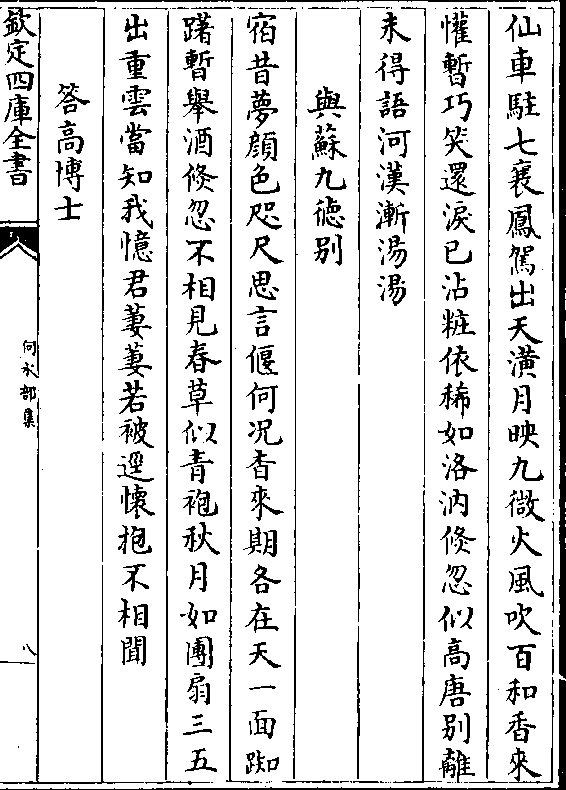 仙車駐七襄鳳駕出天潢月映九微火風吹百和香來
懽暫巧笑還淚已沾粧依稀如洛汭倐忽似高唐别離
未得語河漢漸湯湯
與蘇九徳别
宿昔夢顔色咫尺思言偃何况杳來期各在天一面踟
躇暫舉酒倐忽不相見春草似青袍秋月如團扇三五
出重雲當知我憶君萋萋若被逕懷抱不相聞
答高博士
欽定四庫全書
何水部集
八